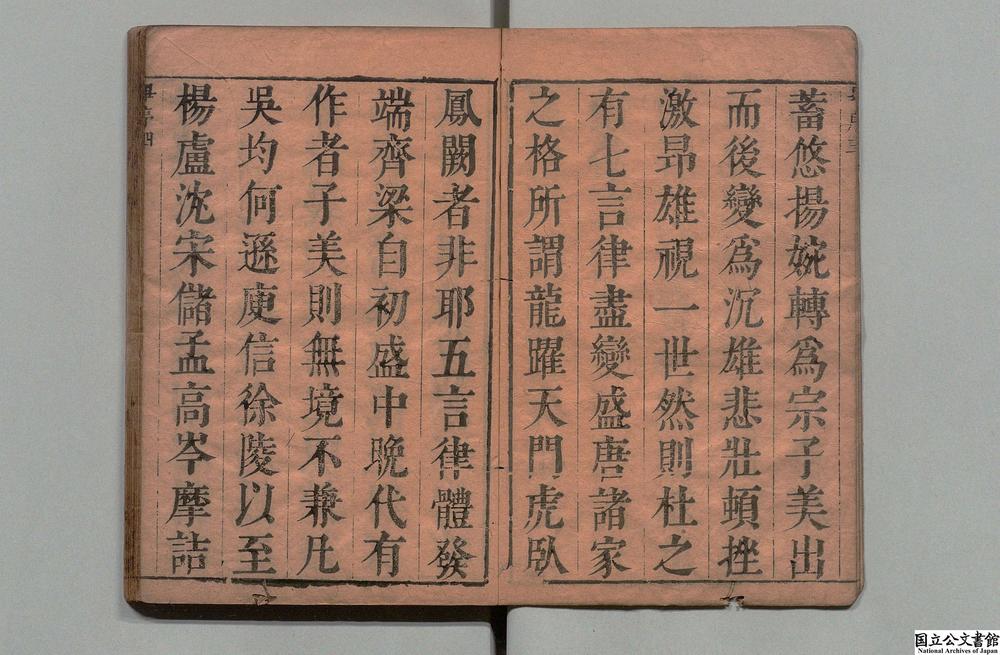 蓄悠揚婉轉爲宗子美出
而後變爲沉雄悲壯頓挫
激昂雄視一世然則杜之
有七言律盡變盛唐諸家
之格所謂龍躍天門虎臥
鳳闕者非耶五言律體發
端齊梁自初盛中晚代有
作者子美則無境不兼凡
吳均何遜庾信徐陵以至
楊盧沈宋儲孟高岑摩詰
国立公文書館
National Archives of Japan